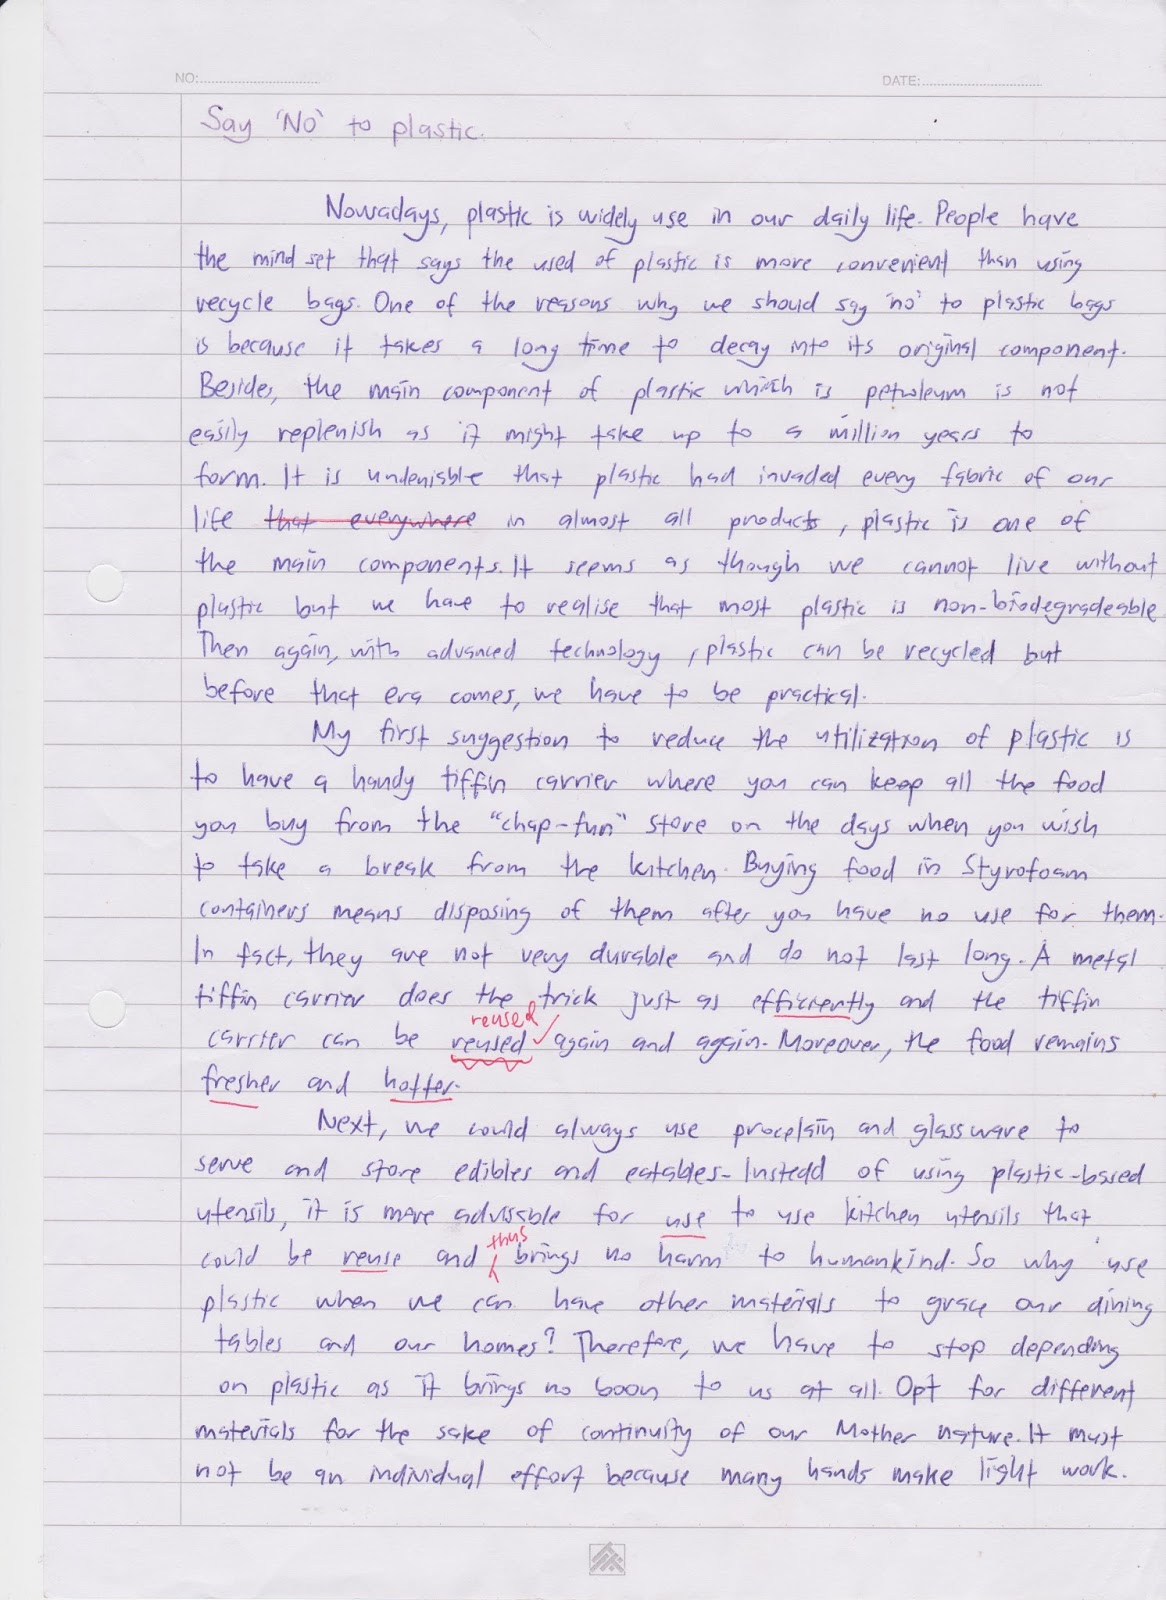 NO:
DATE:
Say 'No' to plastic.
Nowadays, plastic is widely use in our daily life. People have
the mind set that says the used of plastic is more convenient than using
recycle bags. One of the reasons why we should say 'no' to plastic bags
is because it takes a long time to decay into its original component.
Besides, the main component of plastic which is petroleum is not
easily replenish as it might take up to a million years to
form. It is undeniable that plastic had invaded every fabric of our
life that everywhere in almost all products, plastic is one of
the main components. It seems as though we cannot live without
plastic but we have to realise that most plastic is non-biodegradeable
Then again, with advanced technology, plastic can be recycled but
before that era comes, we have to be practical.
My first suggestion to reduce the utilization of plastic is
to have a handy tiffin carrier where you can keep all the food
you buy from the "chap-fun" store on the days when you wish
to take a break from the kitchen. Buying food in Styrofoam
containers means disposing of them after you have no use for them.
In fact, they are not very durable and do not last long. A metal
tiffin carrier does the trick just as efficiently and the tiffin
reused
carrier can be reused again and again. Moreover, the food remains
fresher and hotter.
Next, we could always use procelain and glassware to
serve and store edibles and eatables. Instead of using plastic-based
utensils, it is more advisable for use to use kitchen utensils that
thus
could be reuse and brings no harm to humankind. So why use
plastic when we can have other materials to grace our dining
tables and our homes? Therefore, we have to stop depending
on plastic as it brings no boon to us at all. Opt for different
materials for the sake of continuity of our Mother nature. It must
not be an individual effort because many hands make light work.